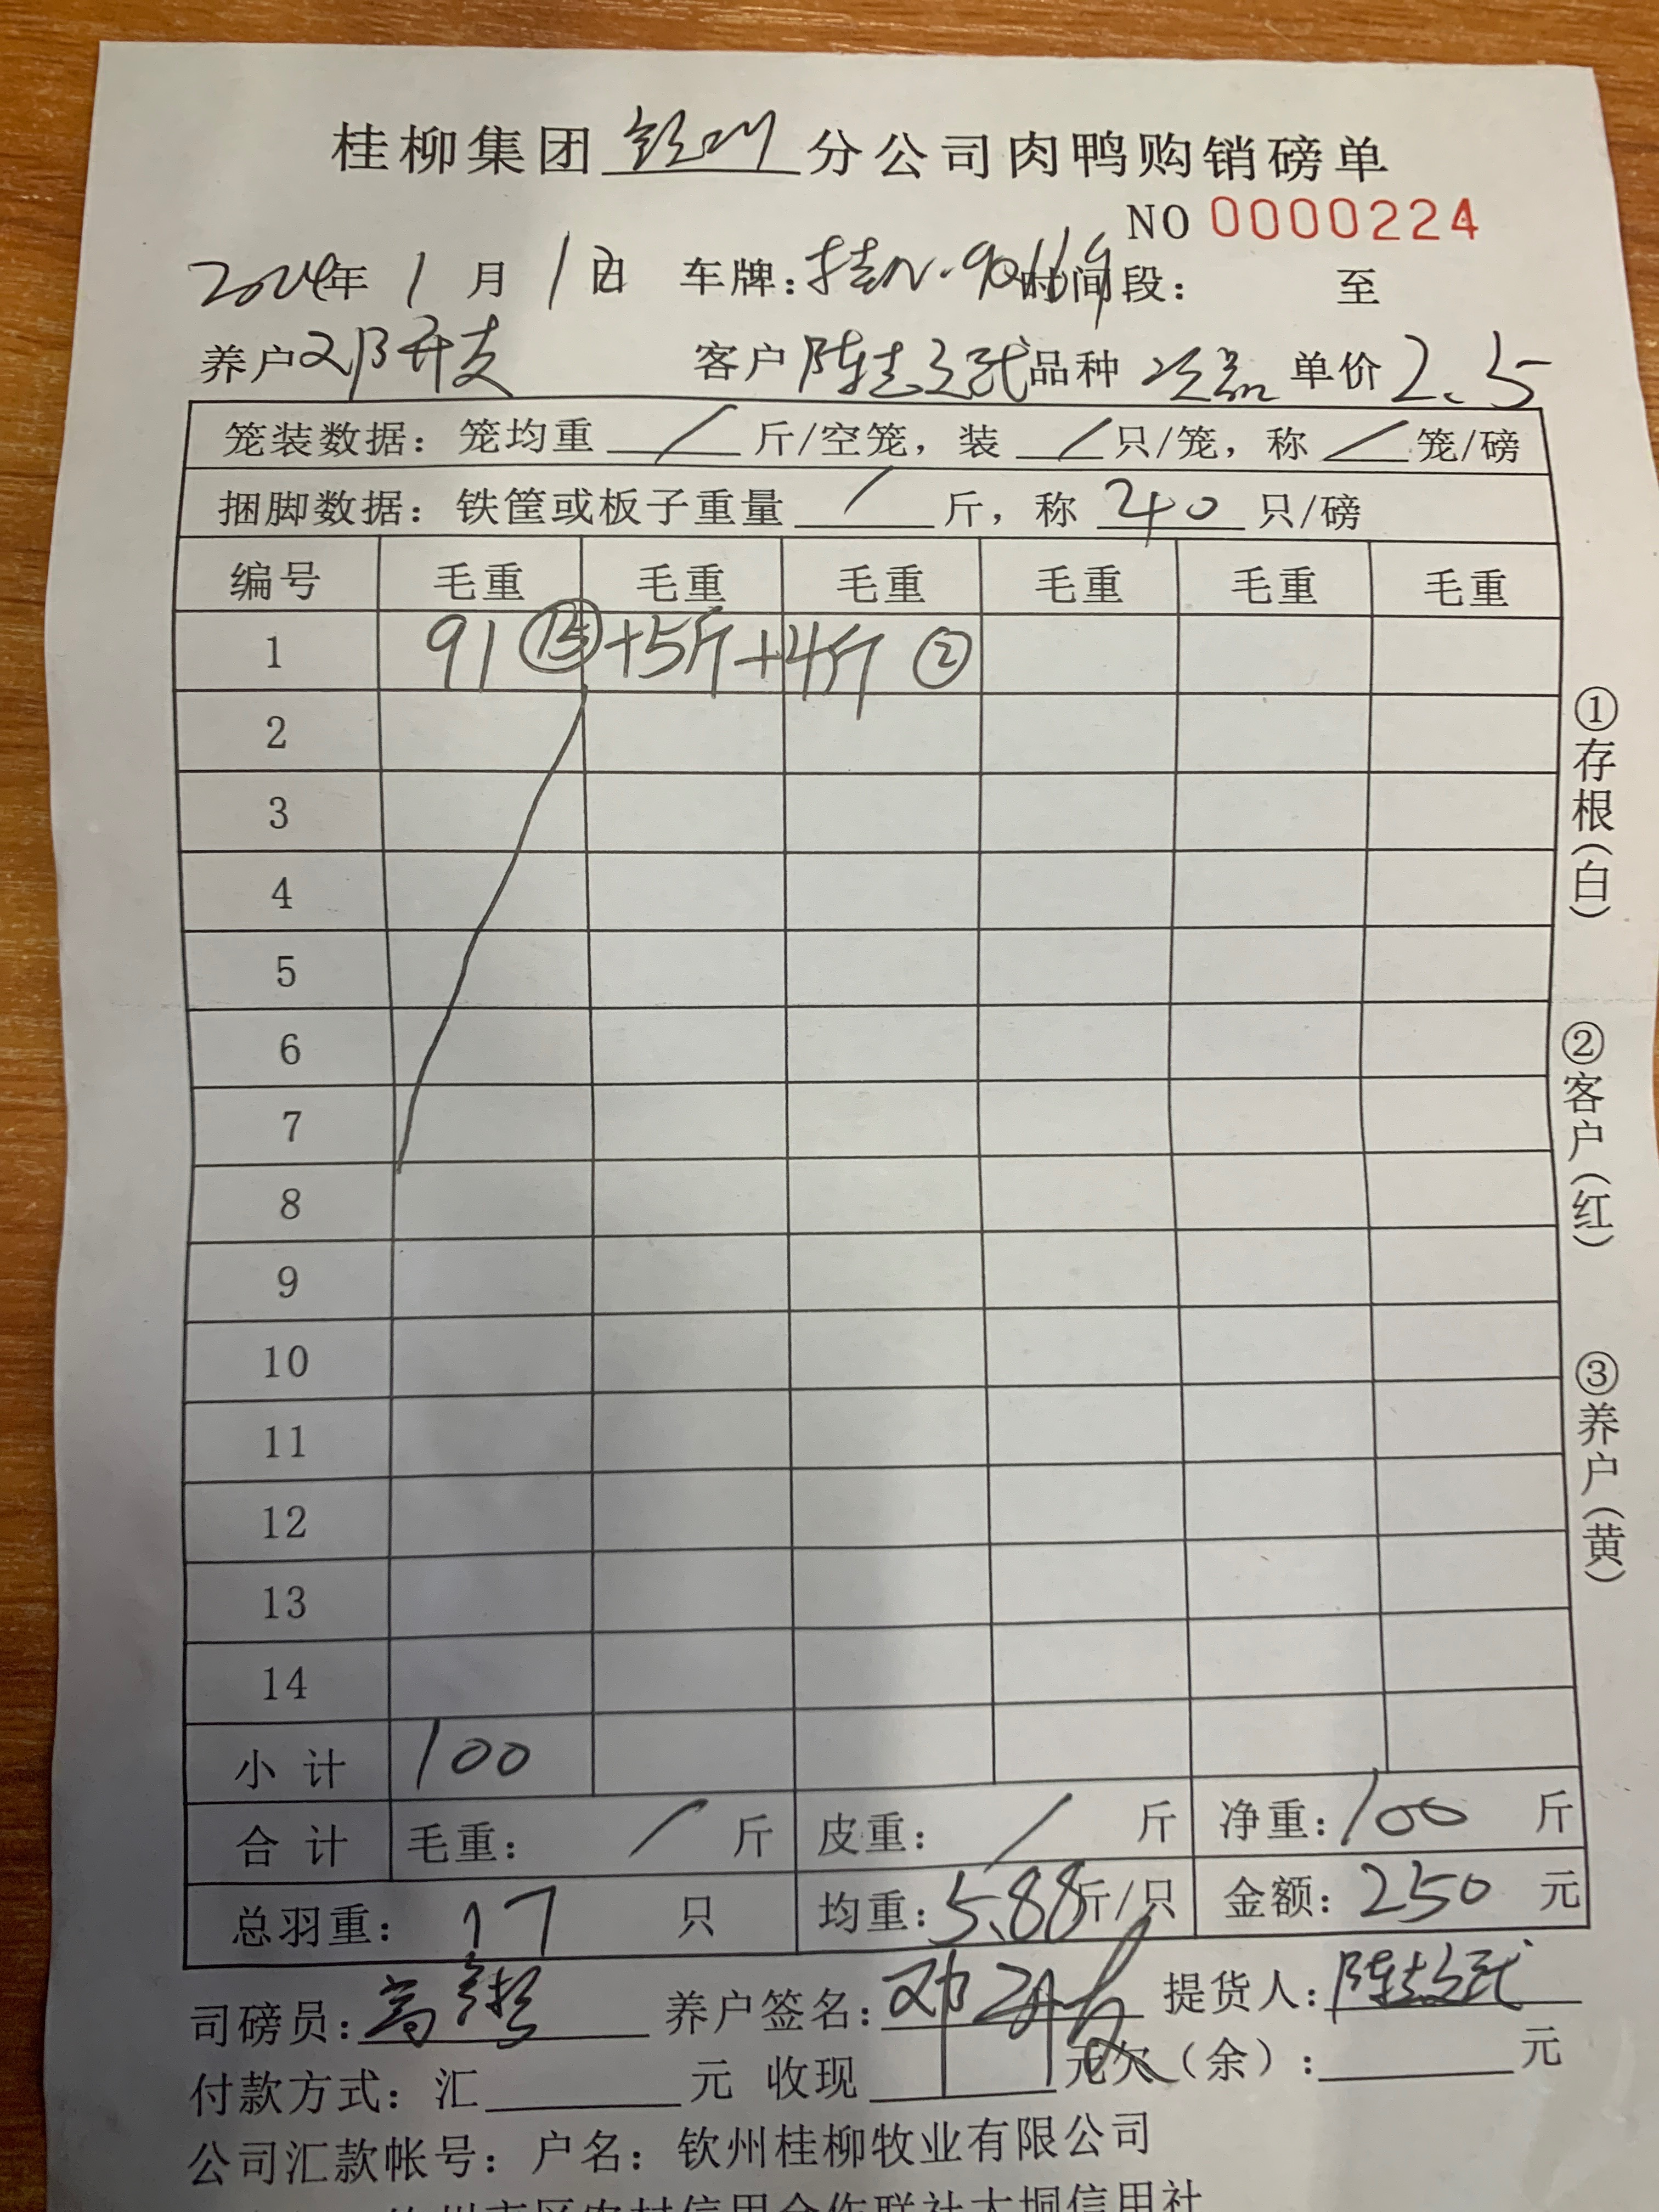 桂柳集团钦州分公司肉鸭购销磅单
NO 0000224
2024年 1 月 1 日 车牌：桂N· 时间段： 至
养户邓开支 客户陈志武品种 次品 单价2.5
笼装数据：笼均重 / 斤/空笼，装 / 只/笼，称 / 笼/磅
捆脚数据：铁筐或板子重量 / 斤，称 240 只/磅
编号 毛重 毛重 毛重 毛重 毛重 毛重
1 91 ⑮ +5斤+4斤 ②
2
3
4
5
6
7
8
9
10
11
12
13
14
小 计 100
合 计 毛重： / 斤 皮重： / 斤 净重：100 斤
总羽重： 17 只 均重：5.88斤/只 金额：250 元
司磅员： 养户签名：邓开支 提货人：陈志武
付款方式：汇 元 收现 元欠（余）： 元
公司汇款帐号：户名：钦州桂柳牧业有限公司
钦州市区农村信用合作联社大垌信用社
①存根（白）
②客户（红）
③养户（黄）